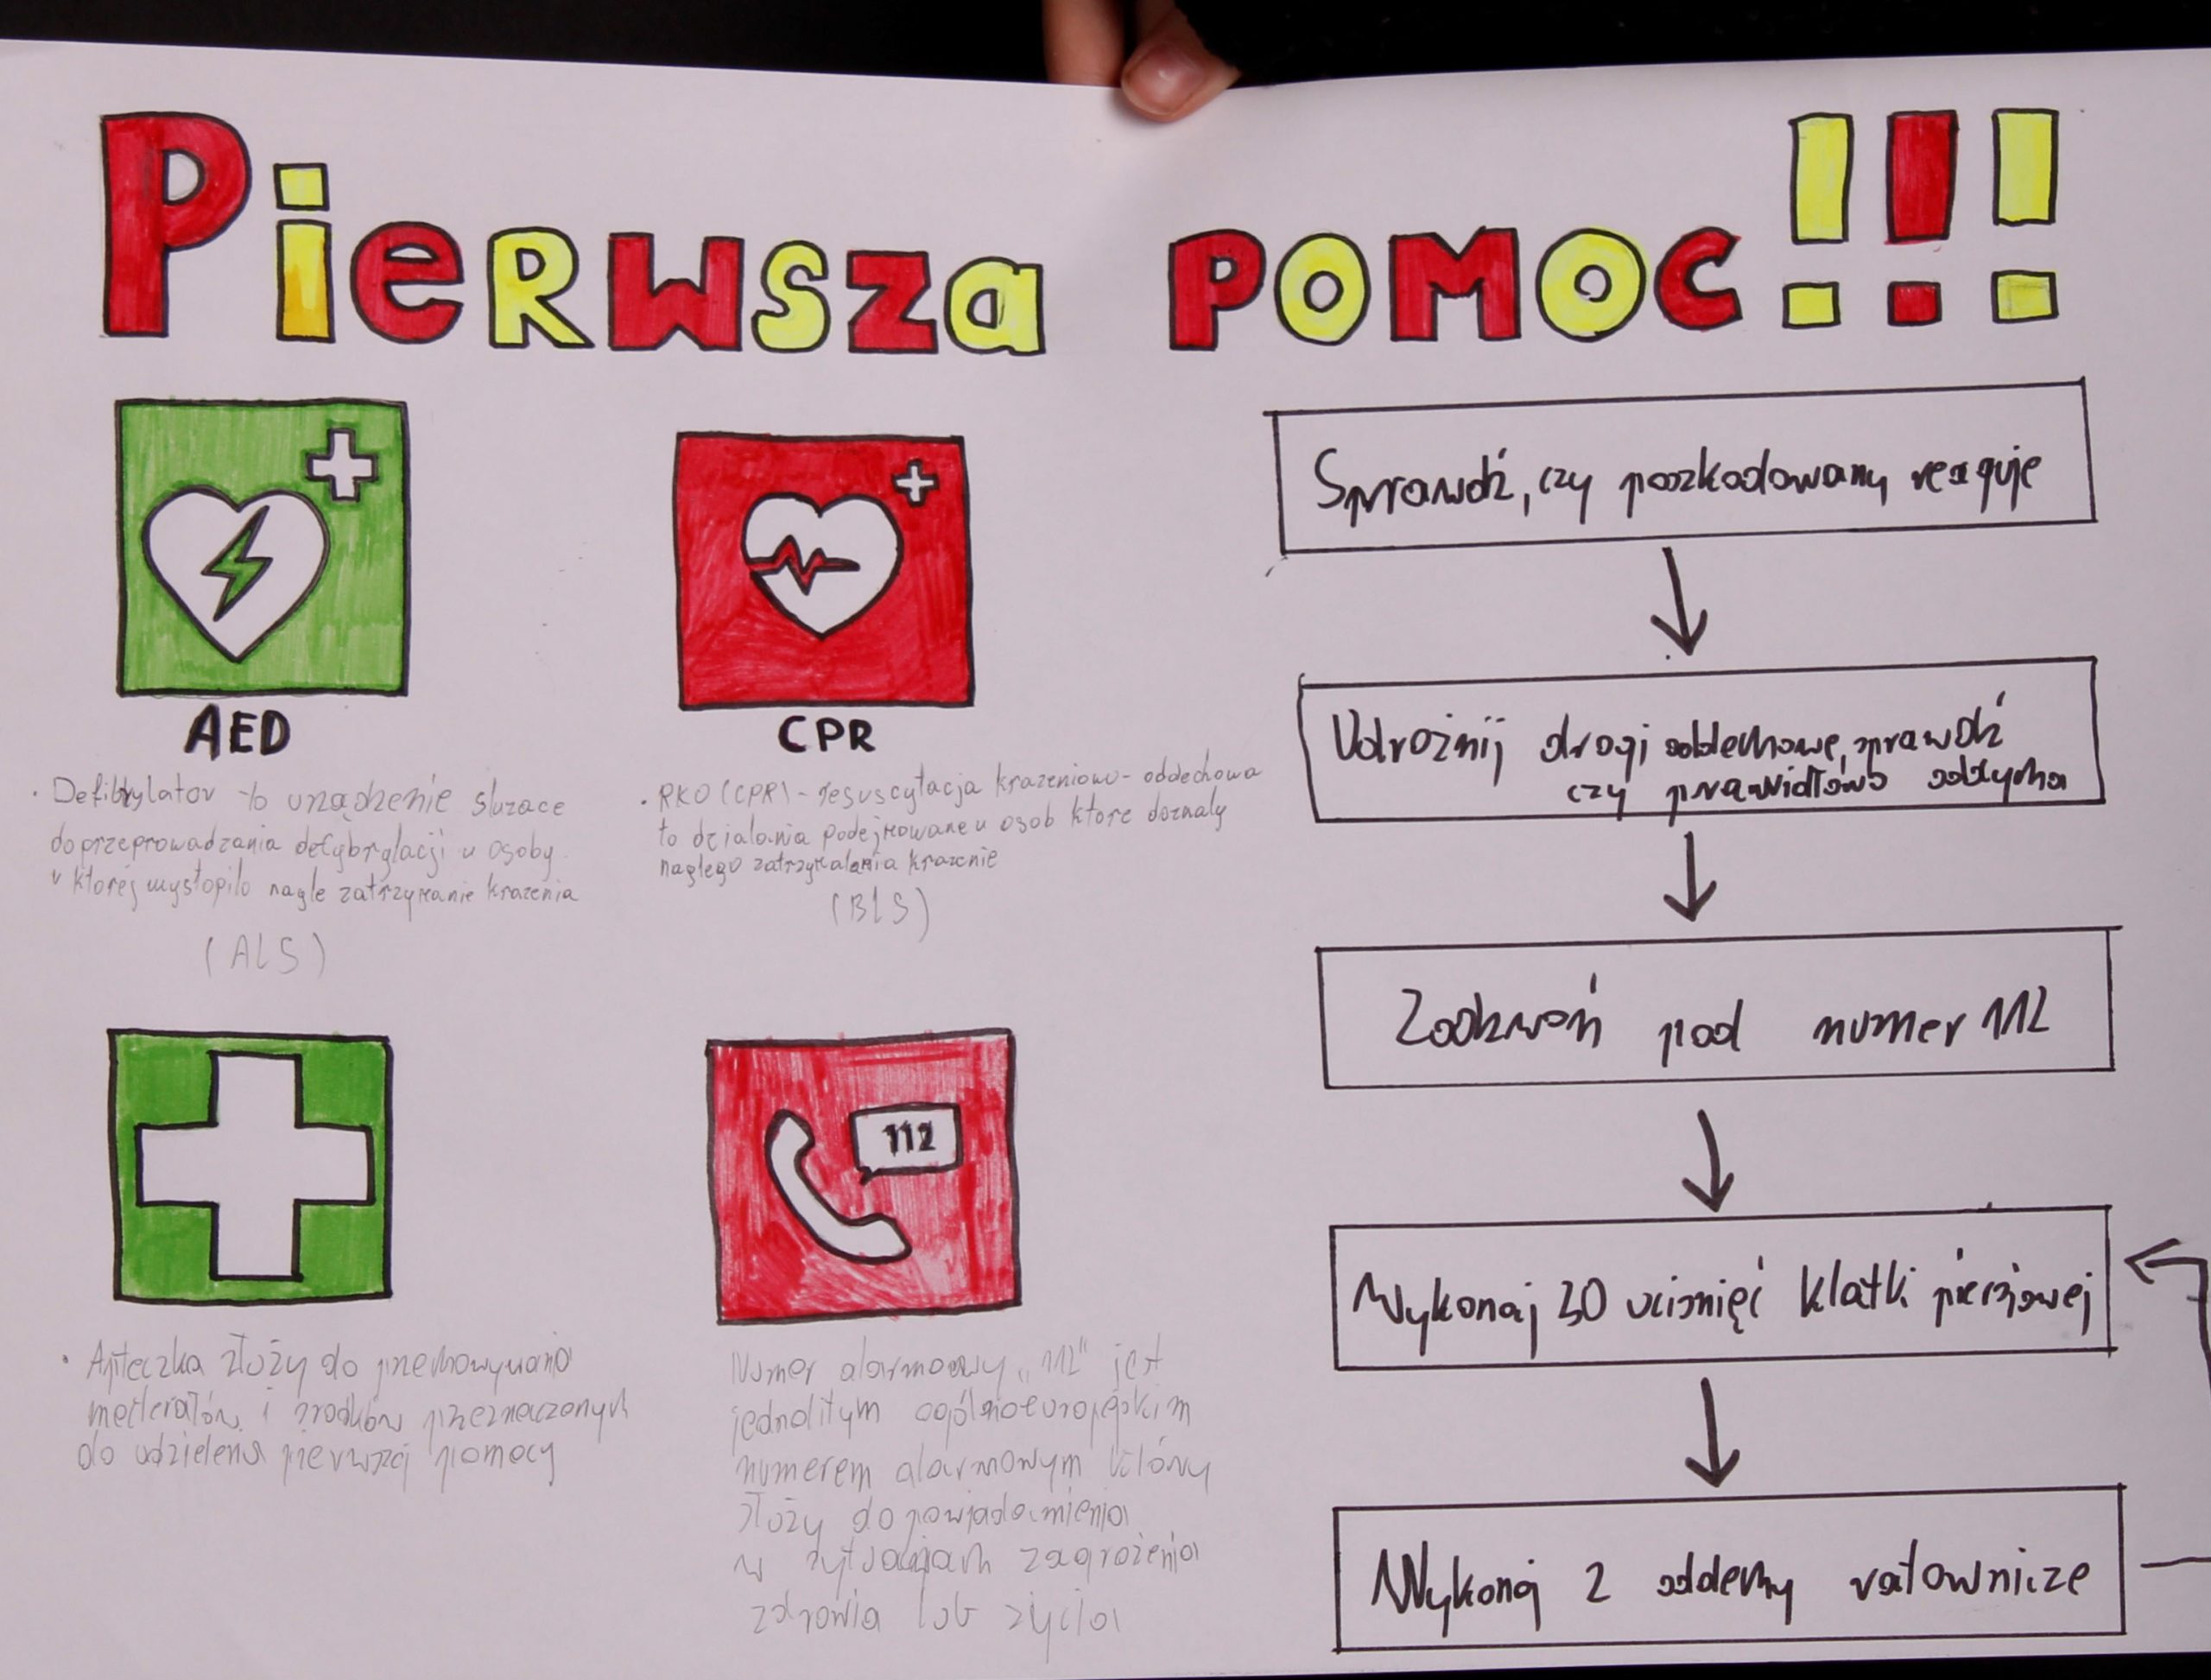 Pierwsza pomoc!!!
AED
· Defibrylator to urządzenie sluzace
do przeprowadzania defybrylacji u osoby
u ktorej wystopilo nagle zatrzymanie krazenia
(ALS)
CPR
· RKO (CPR) - resuscytacja krazeniowo-oddechowa
to dzialania podejmowane u osob ktore doznaly
naglego krazenie
(BLS)
· Apteczka złuży do przechowywania
i środków przeznaczonych
do udzielenia pierwszej pomocy
112
Numer alarmowy „112" jest
jednolitym ogólnoeuropejskim
numerem alarmowym który
służy do powiadomienia
w sytuacjach zagrożenia
zdrowia lub życia
Sprawdź, czy poszkodowany reaguje
Udrożnij drogi oddechowe, sprawdź
czy prawidłowo oddycha
Zadzwoń pod numer 112
Wykonaj 30 uciśnięć klatki piersiowej
Wykonaj 2 oddechy ratownicze